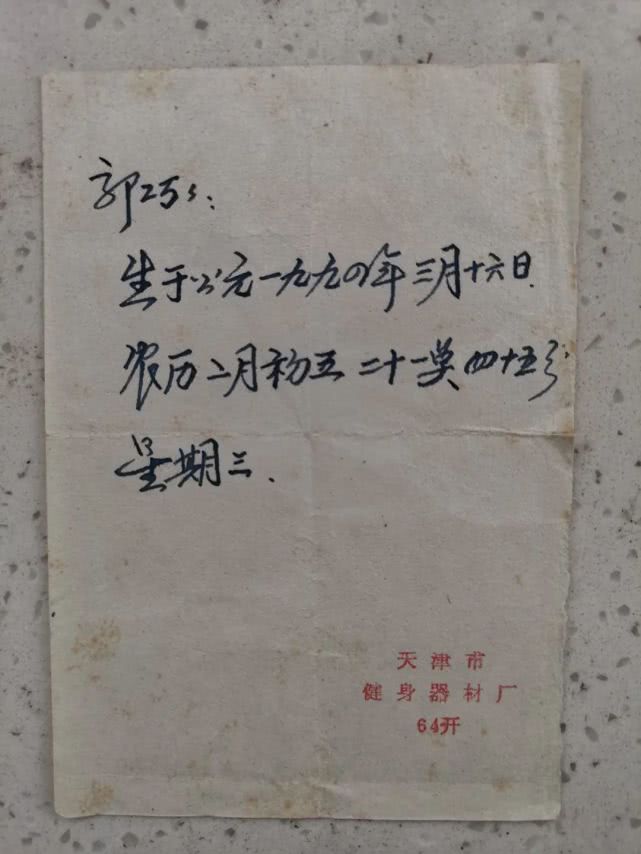 郭巧々:
生于公元一九九四年三月十六日.
农历二月初五二十一点四十五分
星期三.
天津市
健身器材厂
64开